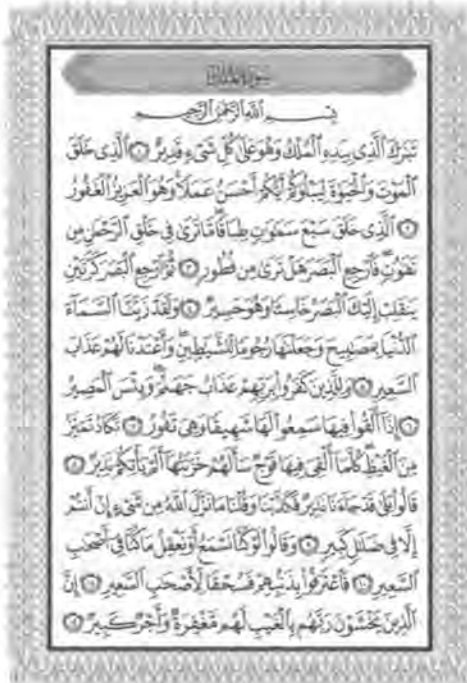 سورة الملك
بِسْمِ ٱللَّهِ ٱلرَّحْمَٰنِ ٱلرَّحِيمِ
تَبَٰرَكَ ٱلَّذِى بِيَدِهِ ٱلْمُلْكُ وَهُوَ عَلَىٰ كُلِّ شَىْءٍ قَدِيرٌ ١ ٱلَّذِى خَلَقَ
ٱلْمَوْتَ وَٱلْحَيَوٰةَ لِيَبْلُوَكُمْ أَيُّكُمْ أَحْسَنُ عَمَلًا وَهُوَ ٱلْعَزِيزُ ٱلْغَفُورُ
٢ ٱلَّذِى خَلَقَ سَبْعَ سَمَٰوَٰتٍ طِبَاقًا مَّا تَرَىٰ فِى خَلْقِ ٱلرَّحْمَٰنِ مِن
تَفَٰوُتٍ فَٱرْجِعِ ٱلْبَصَرَ هَلْ تَرَىٰ مِن فُطُورٍ ٣ ثُمَّ ٱرْجِعِ ٱلْبَصَرَ كَرَّتَيْنِ
يَنقَلِبْ إِلَيْكَ ٱلْبَصَرُ خَاسِئًا وَهُوَ حَسِيرٌ ٤ وَلَقَدْ زَيَّنَّا ٱلسَّمَآءَ
ٱلدُّنْيَا بِمَصَٰبِيحَ وَجَعَلْنَٰهَا رُجُومًا لِّلشَّيَٰطِينِ وَأَعْتَدْنَا لَهُمْ عَذَابَ
ٱلسَّعِيرِ ٥ وَلِلَّذِينَ كَفَرُوا۟ بِرَبِّهِمْ عَذَابُ جَهَنَّمَ وَبِئْسَ ٱلْمَصِيرُ
٦ إِذَآ أُلْقُوا۟ فِيهَا سَمِعُوا۟ لَهَا شَهِيقًا وَهِىَ تَفُورُ ٧ تَكَادُ تَمَيَّزُ
مِنَ ٱلْغَيْظِ كُلَّمَآ أُلْقِىَ فِيهَا فَوْجٌ سَأَلَهُمْ خَزَنَتُهَآ أَلَمْ يَأْتِكُمْ نَذِيرٌ ٨
قَالُوا۟ بَلَىٰ قَدْ جَآءَنَا نَذِيرٌ فَكَذَّبْنَا وَقُلْنَا مَا نَزَّلَ ٱللَّهُ مِن شَىْءٍ إِنْ أَنتُمْ
إِلَّا فِى ضَلَٰلٍ كَبِيرٍ ٩ وَقَالُوا۟ لَوْ كُنَّا نَسْمَعُ أَوْ نَعْقِلُ مَا كُنَّا فِىٓ أَصْحَٰبِ
ٱلسَّعِيرِ ١٠ فَٱعْتَرَفُوا۟ بِذَنۢبِهِمْ فَسُحْقًا لِّأَصْحَٰبِ ٱلسَّعِيرِ ١١ إِنَّ
ٱلَّذِينَ يَخْشَوْنَ رَبَّهُم بِٱلْغَيْبِ لَهُم مَّغْفِرَةٌ وَأَجْرٌ كَبِيرٌ ١٢